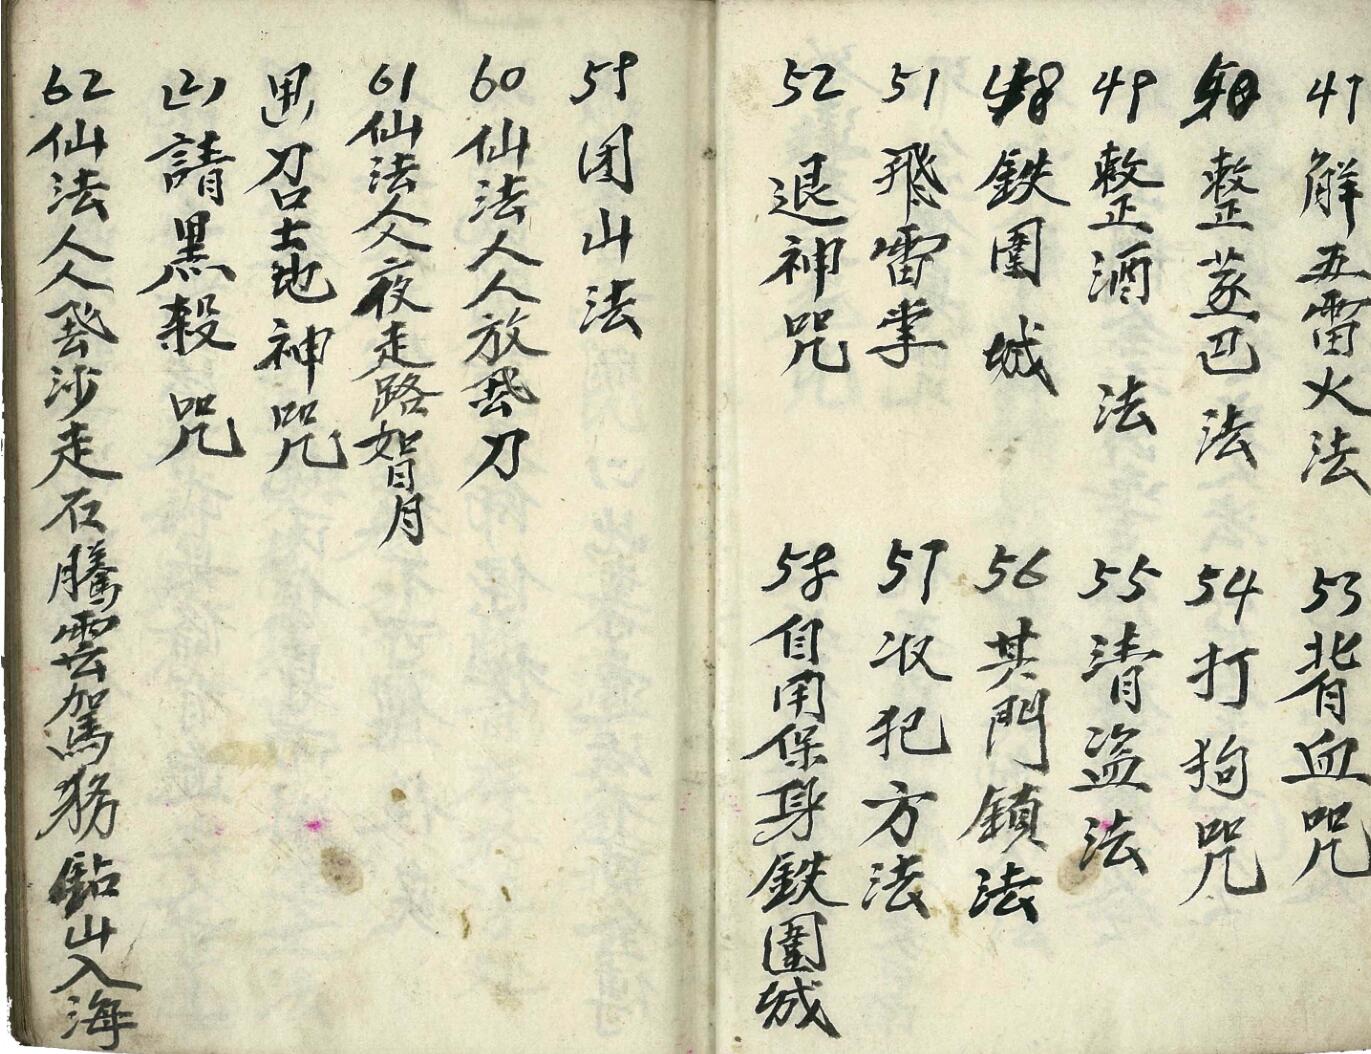 47解五雷火法
整蓬巴法
49整酒法
48鉄圍城
51飛雷掌
52退神咒
53背血咒
54打狗咒
55清盗法
56其門鎖法
57収犯方法
58自用保身鉄圍城
59团山法
60仙法人人放飛刀
61仙法人夜走路如月
召土地神咒
請黑殺咒
62仙法人人飛沙走石騰雲駕務鉆山入海